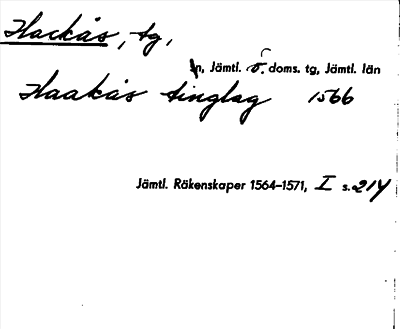 Hackås, tg,
n, Jämtl. ö. doms. tg, Jämtl. län
Haakås tinglag 1566
Jämtl. Räkenskaper 1564–1571, I s. 214